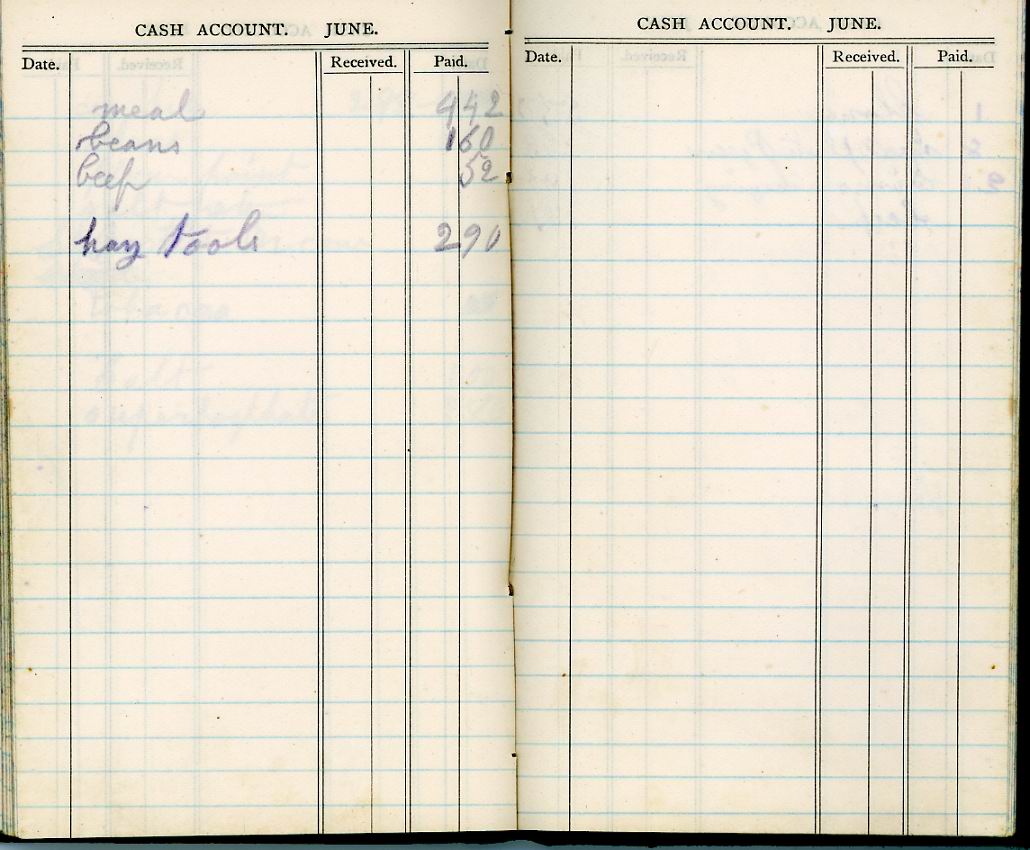 CASH ACCOUNT. JUNE.
Date. Received. Paid.
meal 442
beans 160
beef 52
hay tools 290
CASH ACCOUNT. JUNE.
Date. Received. Paid.